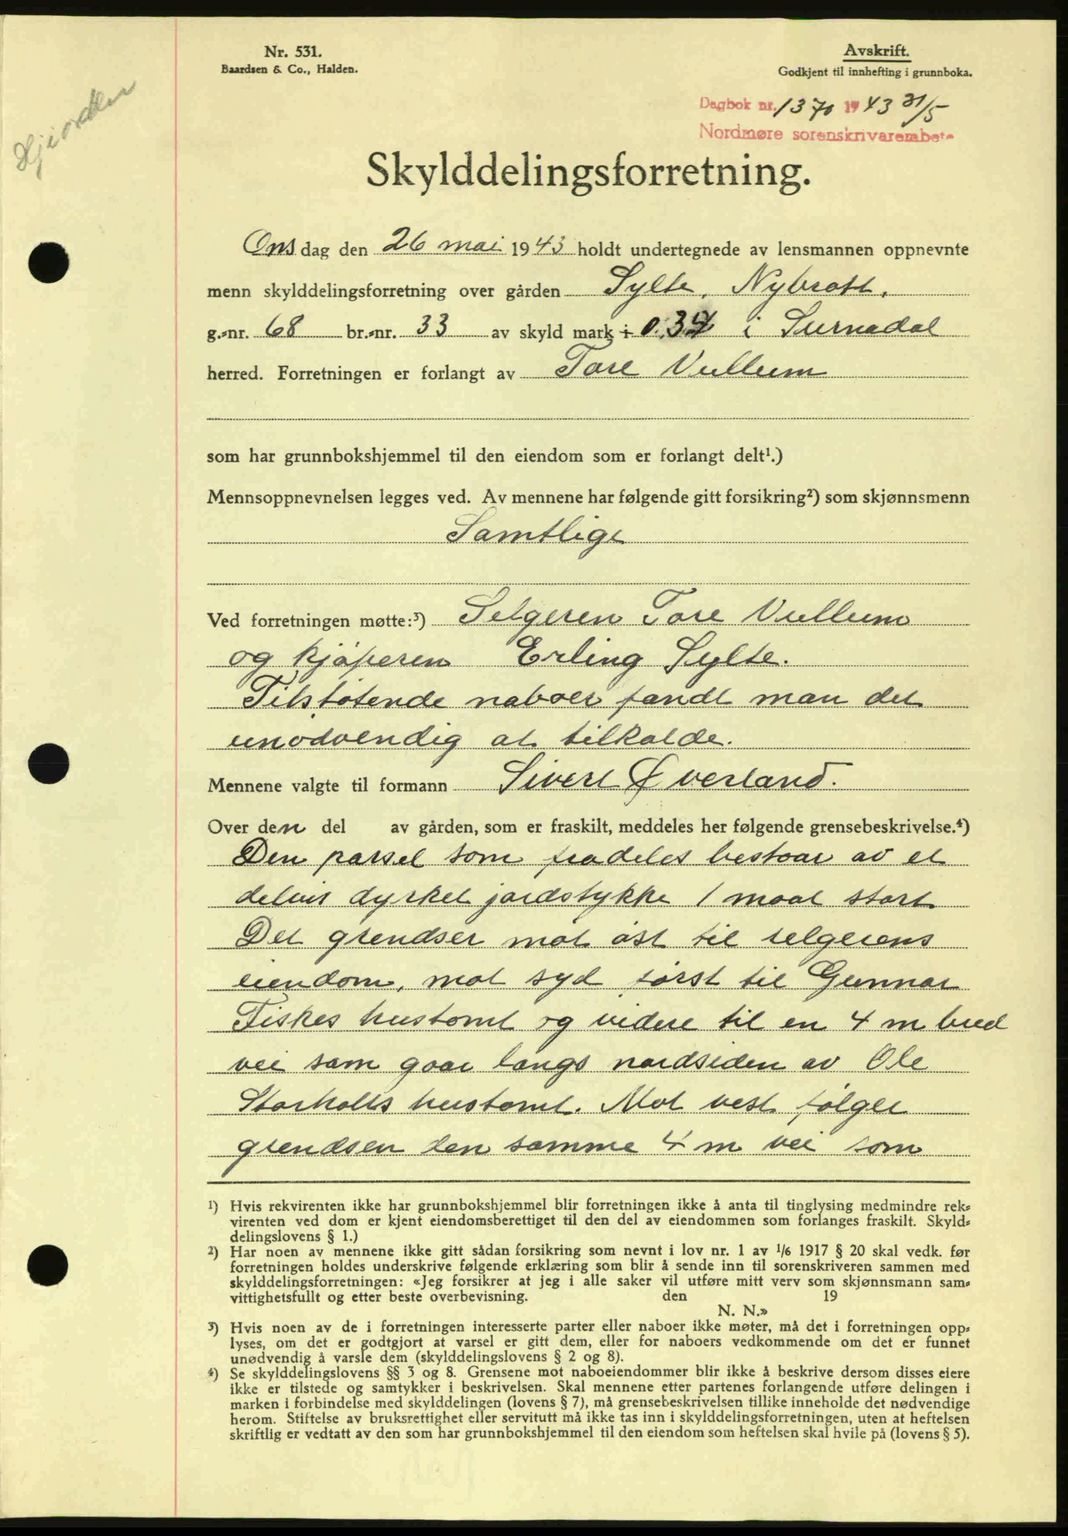 Nr. 531.
Baardsen & Co., Halden.
Avskrift.
Godkjent til innhefting i grunnboka.
Dagbok nr. 1370 1943 31/5
Nordmøre sorenskriverembete
Skylddelingsforretning.
Onsdag den 26 mai 1943 holdt undertegnede av lensmannen oppnevnte
menn skylddelingsforretning over gården Sylte, Nybrott,
g.-nr. 68 br.-nr. 33 av skyld mark i Surnadal
herred. Forretningen er forlangt av Tore Vullum
som har grunnbokshjemmel til den eiendom som er forlangt delt¹.)
Mennsoppnevnelsen legges ved. Av mennene har følgende gitt forsikring²) som skjønnsmenn
Samtlige
Ved forretningen møtte:³) Selgeren Tore Vullum
og kjøperen Erling Sylte.
Tilstøtende naboer fandt man det
unødvendig at tilkalde.
Mennene valgte til formann Sivert Øverland.
Over den del av gården, som er fraskilt, meddeles her følgende grensebeskrivelse.⁴)
Den parsel som fradeles bestaar av et
delvis dyrket jordstykke 1 maal stort
Det grendser mot øst til selgerens
eiendom, mot syd først til Gunnar
Fiskes hustomt og videre til en 4 m bred
vei som gaar langs nordsiden av Ole
Storholts hustomt. Mot vest følger
grendsen den samme 4 m vei som
¹) Hvis rekvirenten ikke har grunnbokshjemmel blir forretningen ikke å anta til tinglysing medmindre rek-
virenten ved dom er kjent eiendomsberettiget til den del av eiendommen som forlanges fraskilt. Skyld-
delingslovens § 1.)
²) Har noen av mennene ikke gitt sådan forsikring som nevnt i lov nr. 1 av 1/6 1917 § 20 skal vedk. før
forretningen holdes underskrive følgende erklæring som blir å sende inn til sorenskriveren sammen med
skylddelingsforretningen: «Jeg forsikrer at jeg i alle saker vil utføre mitt verv som skjønnsmann sam-
vittighetsfullt og etter beste overbevisning. den 19
N. N.»
³) Hvis noen av de i forretningen interesserte parter eller naboer ikke møter, må det i forretningen opp-
lyses, om det er godtgjort at varsel er gitt dem, eller for naboers vedkommende om det er funnet
unødvendig å varsle dem (skylddelingslovens § 2 og 8).
⁴) Se skylddelingslovens §§ 3 og 8. Grensene mot naboeiendommer blir ikke å beskrive dersom disses eiere
ikke er tilstede og samtykker i beskrivelsen. Skal mennene etter partenes forlangende utføre delingen i
marken i forbindelse med skylddelingen (lovens § 7), må grensebeskrivelsen tillike inneholde det nødvendige
herom. Stiftelse av bruksrettighet eller servitutt må ikke tas inn i skylddelingsforretningen, uten at heftelsen
skriftlig er vedtatt av den som har grunnbokshjemmel til den eiendom som heftelsen skal hvile på (lovens § 5).